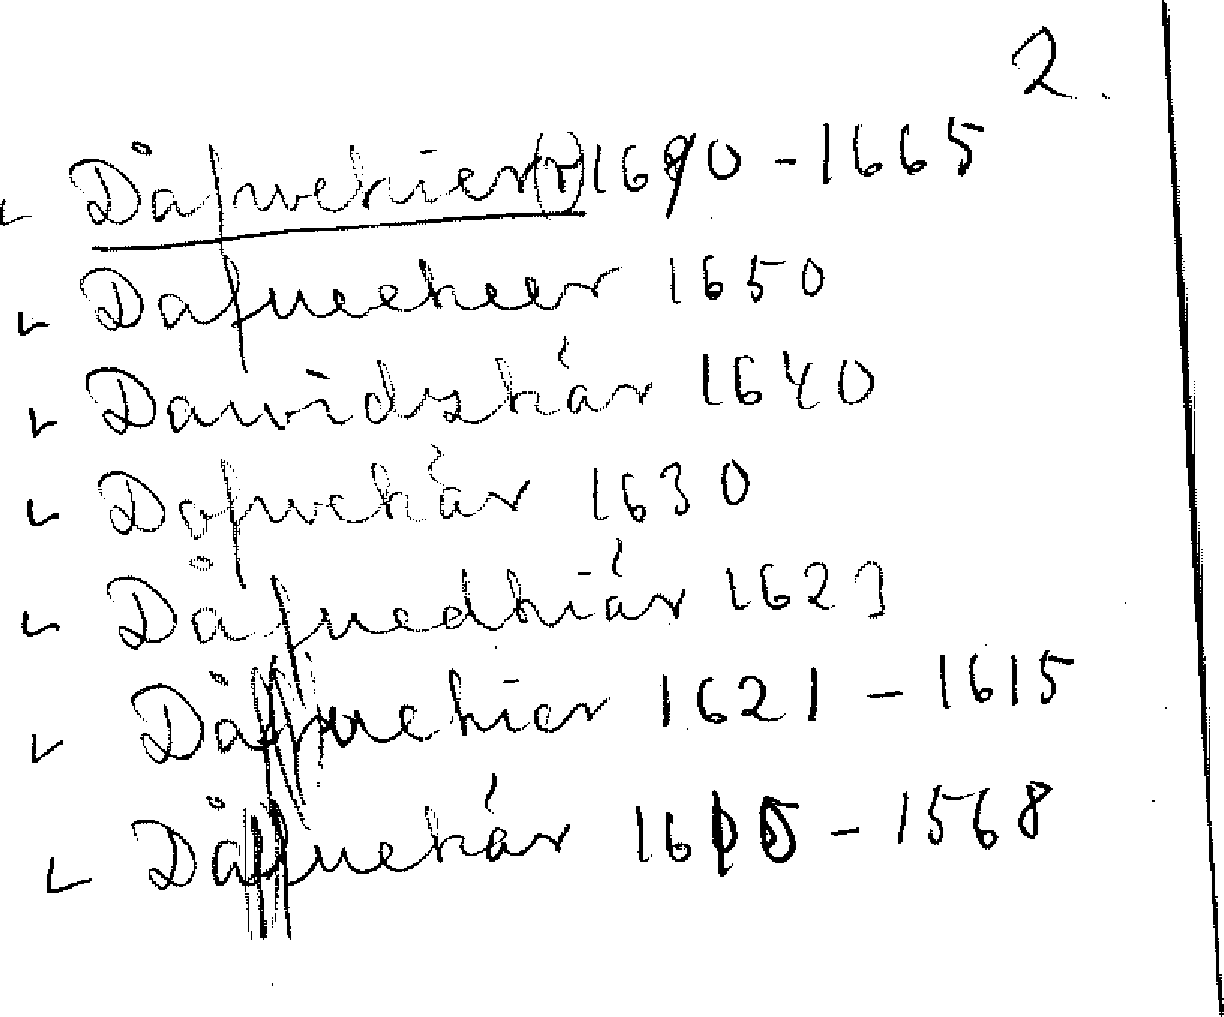 2.
Dåfwekier(r) 1690 - 1665
Dafueekeer 1650
Dawidzkár 1640
Dåfwekár 1630
Dåfuedkiár 1623
Dåfuekier 1621 - 1615
Dåfuekár 1615 - 1568